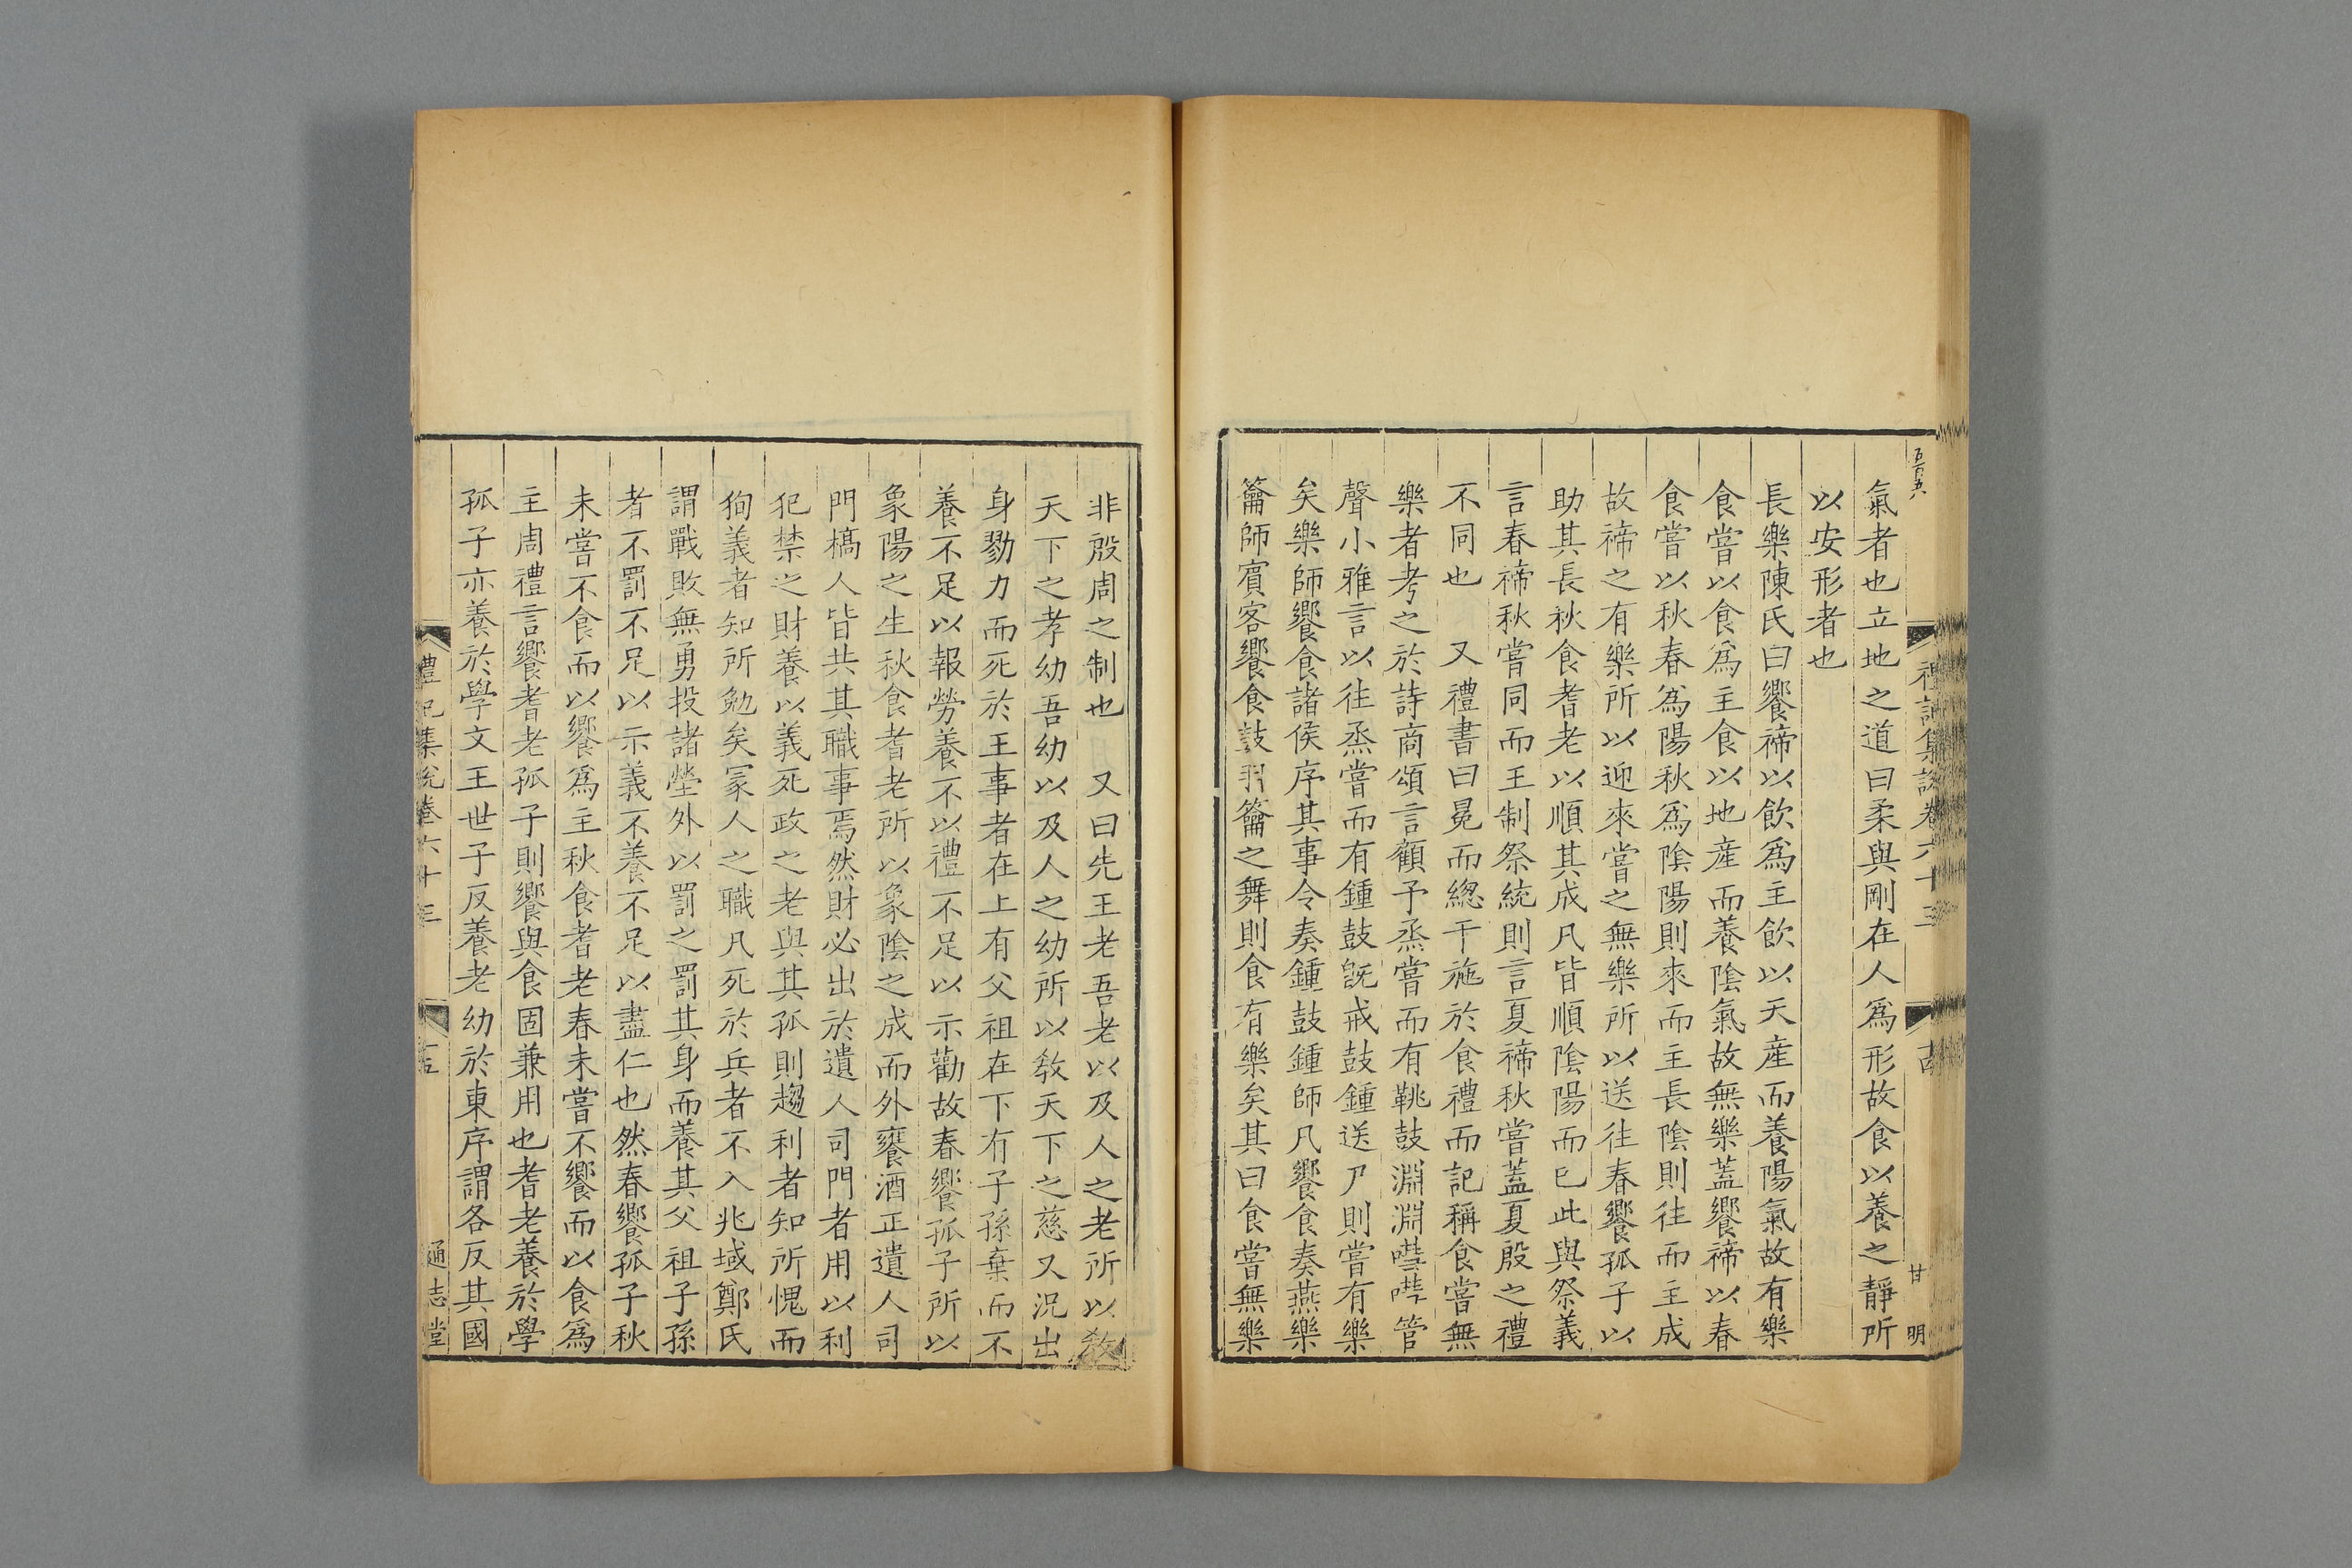 五百五六
禮記集說卷六十三
甘
明
氣者也立地之道曰柔與剛在人爲形故食以養之靜所
以安形者也
長樂陳氏曰饗禘以飲爲主飲以天產而養陽氣故有樂
食嘗以食爲主食以地產而養陰氣故無樂蓋饗禘以春
食嘗以秋春爲陽秋爲陰陽則來而主長陰則往而主成
故禘之有樂所以迎來嘗之無樂所以送往春饗孤子以
助其長秋食耆老以順其成凡皆順陰陽而已此與祭義
言春禘秋嘗同而王制祭統則言夏禘秋嘗蓋夏殷之禮
不同也 又禮書曰冕而緫干施於食禮而記稱食嘗無
樂者考之於詩商頌言顧予烝嘗而有鞉鼓淵淵嘒嘒管
聲小雅言以往烝嘗而有鍾鼓旣戒鼓鍾送尸則嘗有樂
矣樂師饗食諸侯序其事令奏鍾鼓鍾師凡饗食奏燕樂
籥師賓客饗食鼓羽籥之舞則食有樂矣其曰食嘗無樂
非殷周之制也 又曰先王老吾老以及人之老所以教
天下之孝幼吾幼以及人之幼所以敎天下之慈又況出
身勠力而死於王事者在上有父祖在下有子孫棄而不
養不足以報勞養不以禮不足以示勸故春饗孤子所以
象陽之生秋食耆老所以象陰之成而外饔酒正遺人司
門槁人皆共其職事焉然財必出於遺人司門者用以利
犯禁之財養以義死政之老與其孤則趨利者知所愧而
狥義者知所勉矣冢人之職凡死於兵者不入兆域鄭氏
謂戰敗無勇投諸塋外以罰之罰其身而養其父祖子孫
者不罰不足以示義不養不足以盡仁也然春饗孤子秋
未嘗不食而以饗爲主秋食耆老春未嘗不饗而以食爲
主周禮言饗耆老孤子則饗與食固兼用也耆老養於學
孤子亦養於學文王世子反養老幼於東序謂各反其國
禮記集說卷六十三
通志堂